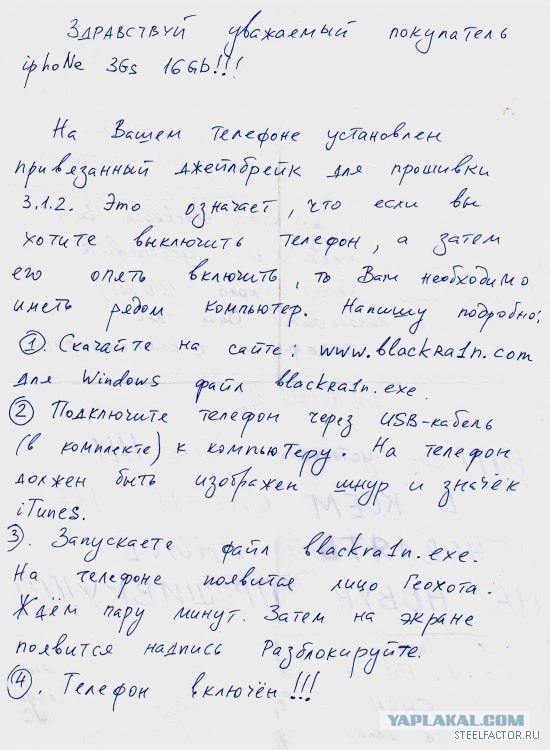 Здравствуй уважаемый покупатель
iphoNe 3Gs 16Gb!!!
На Вашем телефоне установлен
привязанный джейлбрейк для прошивки
3.1.2. Это означает, что если вы
хотите выключить телефон, а затем
его опять включить, то Вам необходимо
иметь рядом компьютер. Напишу подробно:
1. Скачайте на сайте: www.blackra1n.com
для Windows файл blackra1n.exe.
2 Подключите телефон через USB-кабель
(в комплекте) к компьютеру. На телефон
должен быть изображен шнур и значёк
iTunes.
3. Запускаете файл blackra1n.exe.
На телефоне появится лицо Геохота.
Ждём пару минут. Затем на экране
появится надпись Разблокируйте.
4. Телефон включён!!!
YAPLAKAL.COM
STEELFACTOR.RU